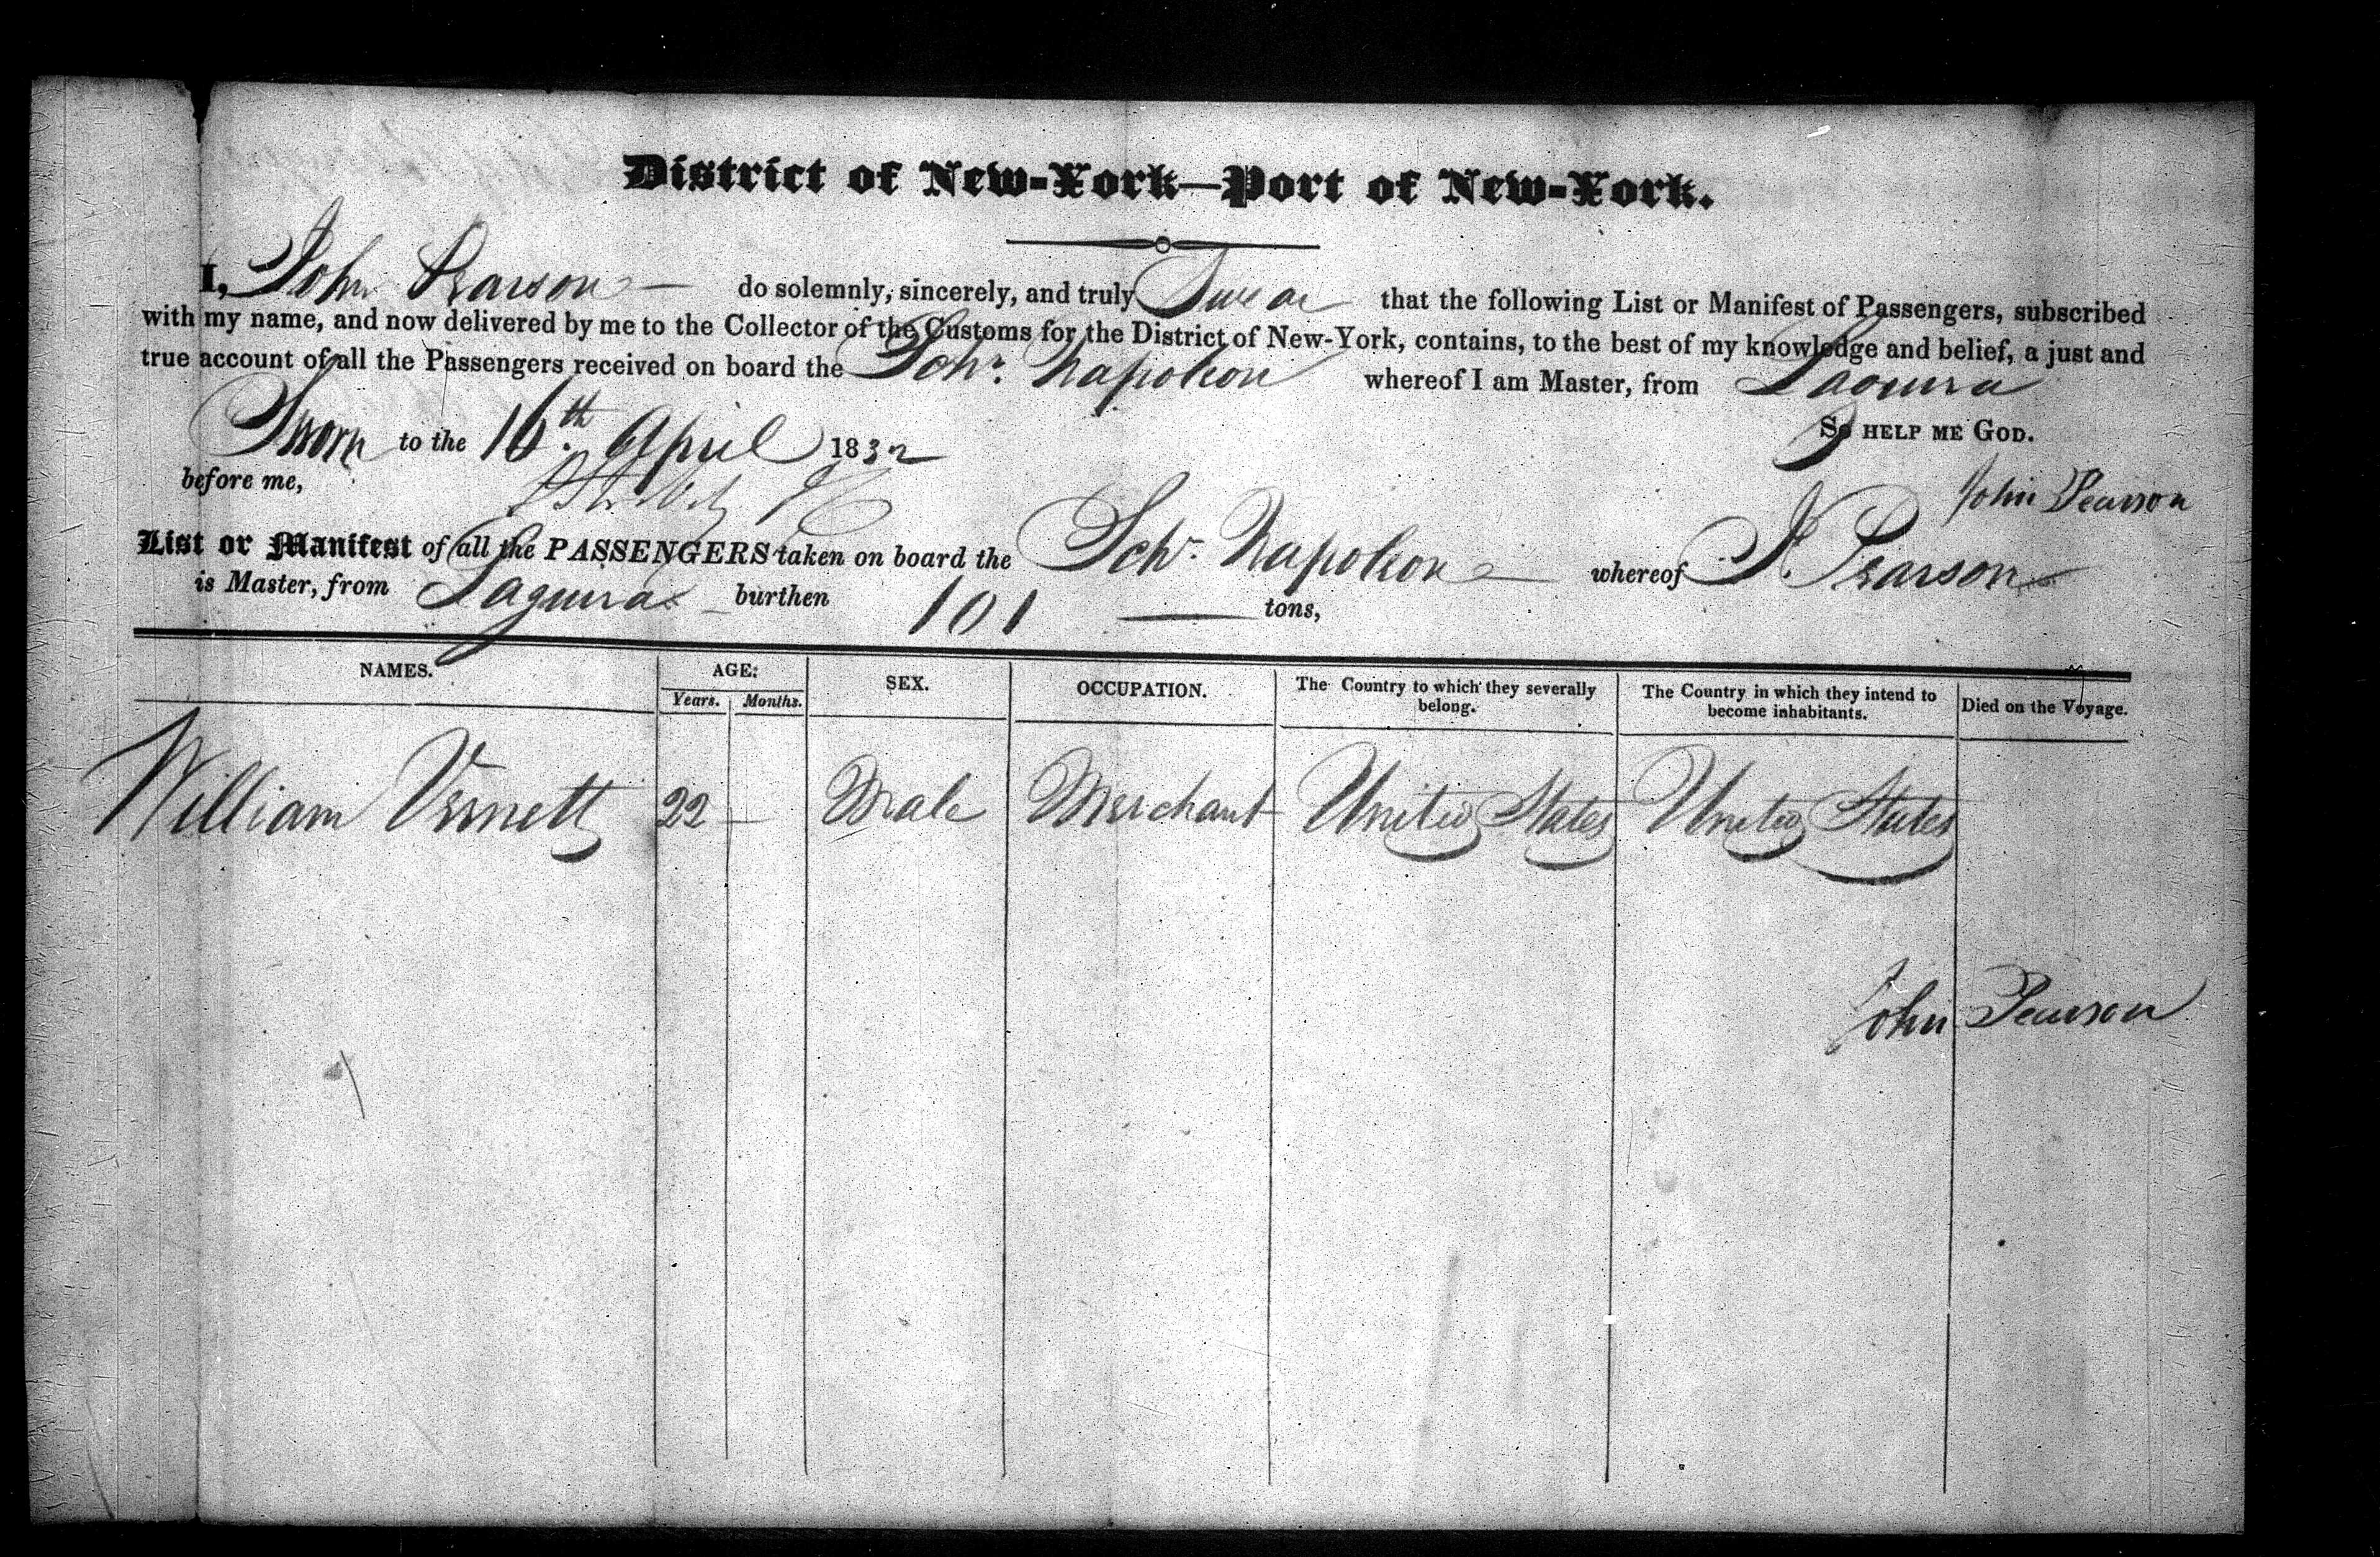 District of New-York—Port of New-York.
I, John Pearson — do solemnly, sincerely, and truly Swear that the following List or Manifest of Passengers, subscribed
with my name, and now delivered by me to the Collector of the Customs for the District of New-York, contains, to the best of my knowledge and belief, a just and
true account of all the Passengers received on board the Schr. Napoleon whereof I am Master, from Laguira
Sworn to the 16th April 1832 So HELP ME GOD.
before me, John Pearson
List or Manifest of all the PASSENGERS taken on board the Schr. Napoleon — whereof J. Pearson
is Master, from Laguira — burthen 101 — tons,
NAMES. AGE: Years. Months. SEX. OCCUPATION. The Country to which they severally belong. The Country in which they intend to become inhabitants. Died on the Voyage.
William Vernett 22 — Male Merchant United States United States
John Pearson